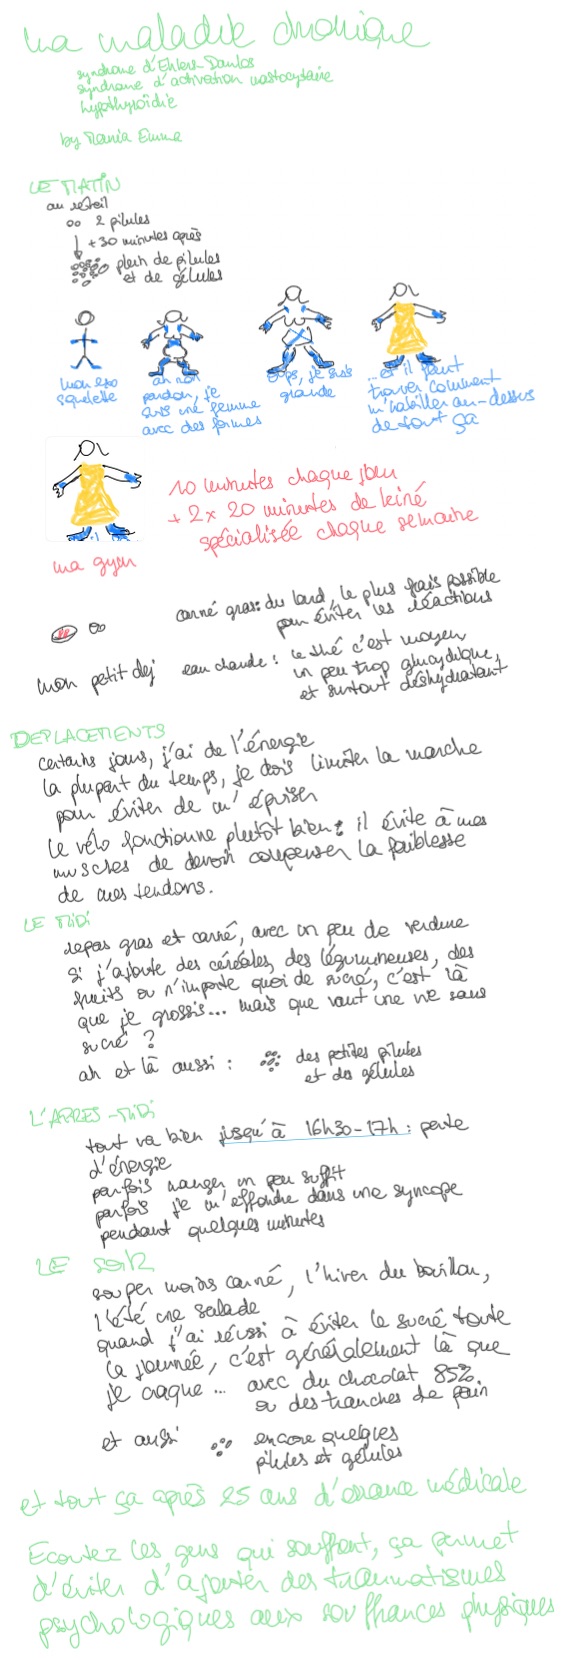 ma maladie chronique
syndrome d'Ehlers-Danlos
syndrome d'activation mastocytaire
hypothyroïdie
by Mania Emma
LE MATIN
au réveil
2 pilules
+30 minutes après
plein de pilules
et de gélules
mon exo
squelette
ah non
pardon, je
suis une femme
avec des formes
oups, je suis
grande
...et il faut
trouver comment
m'habiller au-dessus
de tout ça
10 minutes chaque jour
+ 2 x 20 minutes de kiné
spécialisée chaque semaine
ma gym
carné gras: du lard, le plus frais possible
pour éviter les réactions
mon petit dej
eau chaude : le thé c'est moyen,
un peu trop glucydique,
et surtout déshydratant
DEPLACEMENTS
certains jours, j'ai de l'énergie
la plupart du temps, je dois limiter la marche
pour éviter de m'épuiser
le vélo fonctionne plutôt bien : il évite à mes
muscles de devoir compenser la faiblesse
de mes tendons.
LE MIDI
repas gras et carné, avec un peu de verdure
si j'ajoute des céréales, des légumineuses, des
fruits ou n'importe quoi de sucré, c'est là
que je grossis... mais que vaut une vie sans
sucré ?
ah et là aussi :
des petites pilules
et des gélules
L'APRES-MIDI
tout va bien jusqu'à 16h30-17h : perte
d'énergie
parfois manger un peu suffit
parfois je m'effondre dans une syncope
pendant quelques minutes
LE SOIR
souper moins carné, l'hiver du bouillon,
l'été une salade
quand j'ai réussi à éviter le sucré toute
la journée, c'est généralement là que
je craque ... avec du chocolat 85%
ou des tranches de pain
et aussi
encore quelques
pilules et gélules
et tout ça après 25 ans d'errance médicale
Ecoutez les gens qui souffrent, ça permet
d'éviter d'ajouter des traumatismes
psychologiques aux souffrances physiques